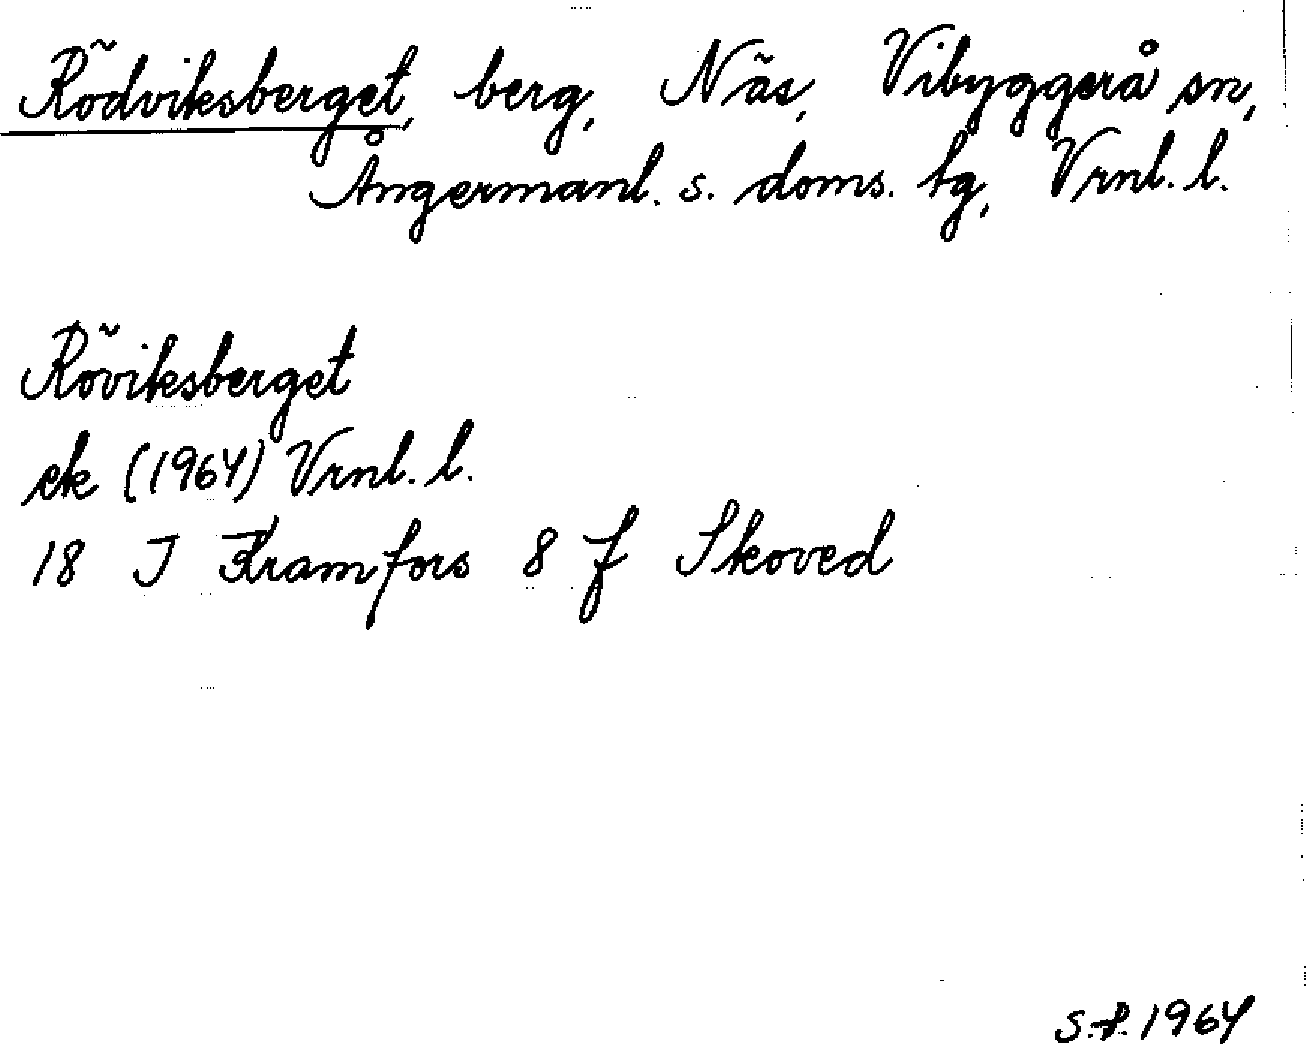 Rödviksberget, berg, Näs, Vibyggerå sn,
Ångermanl. s. doms. tg, Vrnl. l.
Röviksberget
ek (1964) Vrnl. l.
18 J Kramfors 8 f Skoved
1964